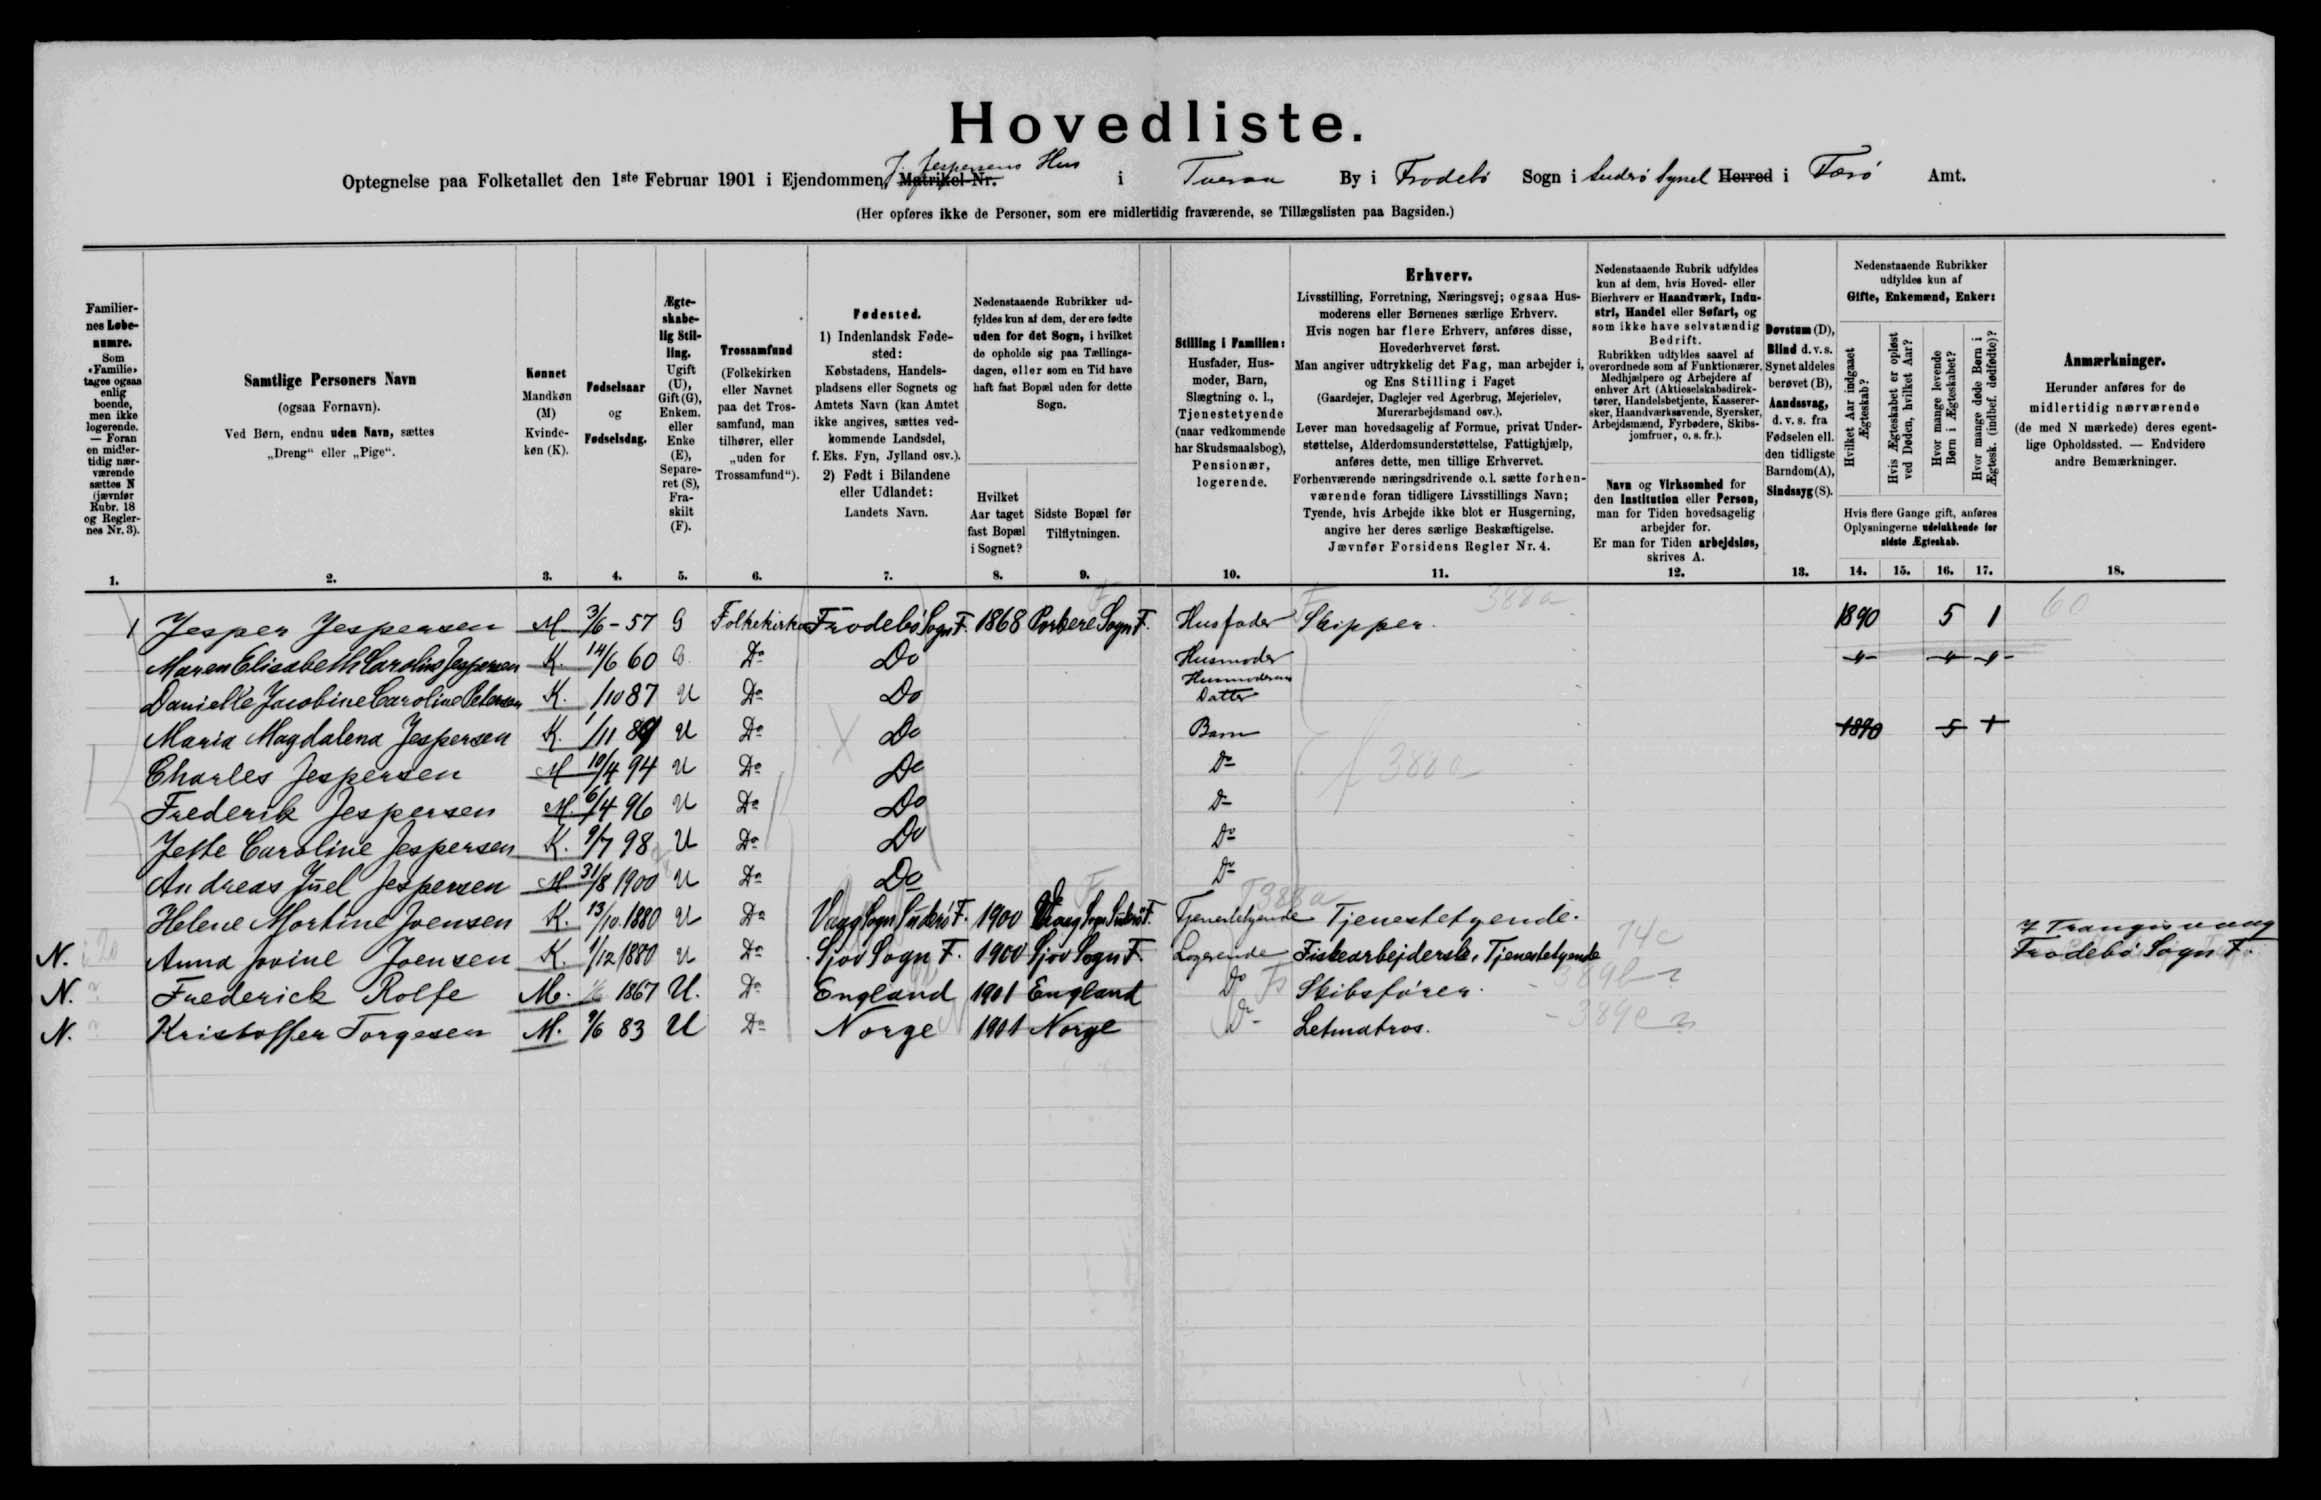 Hovedliste.
Optegnelse paa Folketallet den 1ste Februar 1901 i Ejendommen, Matrikel-Nr. J. Jespersens Hus i Tveraa By i Frodebö Sogn i Suderö Syssel Herred i Færö Amt.
(Her opføres ikke de Personer, som ere midlertidig fraværende, se Tillægslisten paa Bagsiden.)
Familiernes Løbenumre.
Som «Familie» tages ogsaa enlig boende, men ikke logerende. — Foran en midlertidig nærværende sættes N (jævnfør Rubr. 18 og Reglernes Nr. 3).
1.
Samtlige Personers Navn
(ogsaa Fornavn).
Ved Børn, endnu uden Navn, sættes
„Dreng“ eller „Pige“.
2.
Kønnet
Mandkøn (M)
Kvindekøn (K).
3.
Fødselsaar
og
Fødselsdag.
4.
Ægteskabelig Stilling.
Ugift (U), Gift (G), Enkem. eller Enke (E), Separeret (S), Fraskilt (F).
5.
Trossamfund
(Folkekirken eller Navnet paa det Trossamfund, man tilhører, eller „uden for Trossamfund“).
6.
Fødested.
1) Indenlandsk Fødested:
Købstadens, Handelspladsens eller Sognets og Amtets Navn (kan Amtet ikke angives, sættes vedkommende Landsdel, f. Eks. Fyn, Jylland osv.).
2) Født i Bilandene eller Udlandet:
Landets Navn.
7.
Nedenstaaende Rubrikker udfyldes kun af dem, der ere fødte uden for det Sogn, i hvilket de opholde sig paa Tællingsdagen, eller som en Tid have haft fast Bopæl uden for dette Sogn.
Hvilket Aar taget fast Bopæl i Sognet?
8.
Sidste Bopæl før Tilflytningen.
9.
Stilling i Familien:
Husfader, Husmoder, Barn, Slægtning o. l., Tjenestetyende (naar vedkommende har Skudsmaalsbog), Pensionær, logerende.
10.
Erhverv.
Livsstilling, Forretning, Næringsvej; ogsaa Husmoderens eller Børnenes særlige Erhverv.
Hvis nogen har flere Erhverv, anføres disse, Hovederhvervet først.
Man angiver udtrykkelig det Fag, man arbejder i, og Ens Stilling i Faget
(Gaardejer, Daglejer ved Agerbrug, Mejerielev, Murerarbejdsmand osv.).
Lever man hovedsagelig af Formue, privat Understøttelse, Alderdomsunderstøttelse, Fattighjælp, anføres dette, men tillige Erhvervet.
Forhenværende næringsdrivende o. l. sætte forhenværende foran tidligere Livsstillings Navn;
Tyende, hvis Arbejde ikke blot er Husgerning, angive her deres særlige Beskæftigelse.
Jævnfør Forsidens Regler Nr. 4.
11.
Nedenstaaende Rubrik udfyldes kun af dem, hvis Hoved- eller Bierhverv er Haandværk, Industri, Handel eller Søfart, og som ikke have selvstændig Bedrift.
Rubrikken udfyldes saavel af overordnede som af Funktionærer, Medhjælpere og Arbejdere af enhver Art (Aktieselskabsdirektører, Handelsbetjente, Kassererrsker, Haandværkssvende, Syersker, Arbejdsmænd, Fyrbødere, Skibsjomfruer, o. s. fr.).
Navn og Virksomhed for den Institution eller Person, man for Tiden hovedsagelig arbejder for.
Er man for Tiden arbejdsløs, skrives A.
12.
Døvstum (D), Blind d. v. s. Synet aldeles berøvet (B), Aandssvag, d. v. s. fra Fødselen ell. den tidligste Barndom (A), Sindssyg (S).
13.
Nedenstaaende Rubrikker udfyldes kun af
Gifte, Enkemænd, Enker:
Hvilket Aar indgaaet Ægteskab?
Hvis Ægteskabet er opløst ved Døden, hvilket Aar?
Hvor mange levende Børn i Ægteskabet?
Hvor mange døde Børn i Ægtesk. (indbef. dødfødte)?
Hvis flere Gange gift, anføres Oplysningerne udelukkende for sidste Ægteskab.
14. 15. 16. 17.
Anmærkninger.
Herunder anføres for de midlertidig nærværende (de med N mærkede) deres egentlige Opholdssted. — Endvidere andre Bemærkninger.
18.
1 Jesper Jespersen M 3/6-57 G Folkekirken Frodebö Sogn F. 1868 Porkere Sogn F. Husfader Skipper. 388a 1890 5 1 60
Maren Elisabeth Caroline Jespersen K. 14/6 60 G. Do Do Husmoder " " "
Danielle Jacobine Caroline Petersen K. /10 87 U Do Do Husmoderens Datter
Maria Magdalena Jespersen K. 1/11 89 U Do Do Barn 1890 5 1
Charles Jespersen M 10/4 94 U Do Do Do 388a
Frederik Jespersen M. 6/4 96 U Do Do Do
Jette Caroline Jespersen K. 9/7 98 U Do Do Do
Andreas Juel Jespersen M 31/8 1900 U Do Do Do
Helene Martine Joensen K. 13/10. 1880 U Do Vaag Sogn Suderö F. 1900 Vaag Sogn Suderö F. Tjenestetyende Tjenestetyende. 388a
N. Anna Jovine Joensen K. 1/12 1880 U Do Sjov Sogn F. 1900 Sjov Sogn F. Logerende Fiskearbejderske, Tjenestetyende 74c Trangisvaag Frodebö Sogn F.
N. Frederick Rolfe M. 1867 U. Do England 1901 England Do Skibsfører. 389b
N. Kristoffer Torgesen M. 9/6 83 U Do Norge 1901 Norge Do Letmatros. 389c